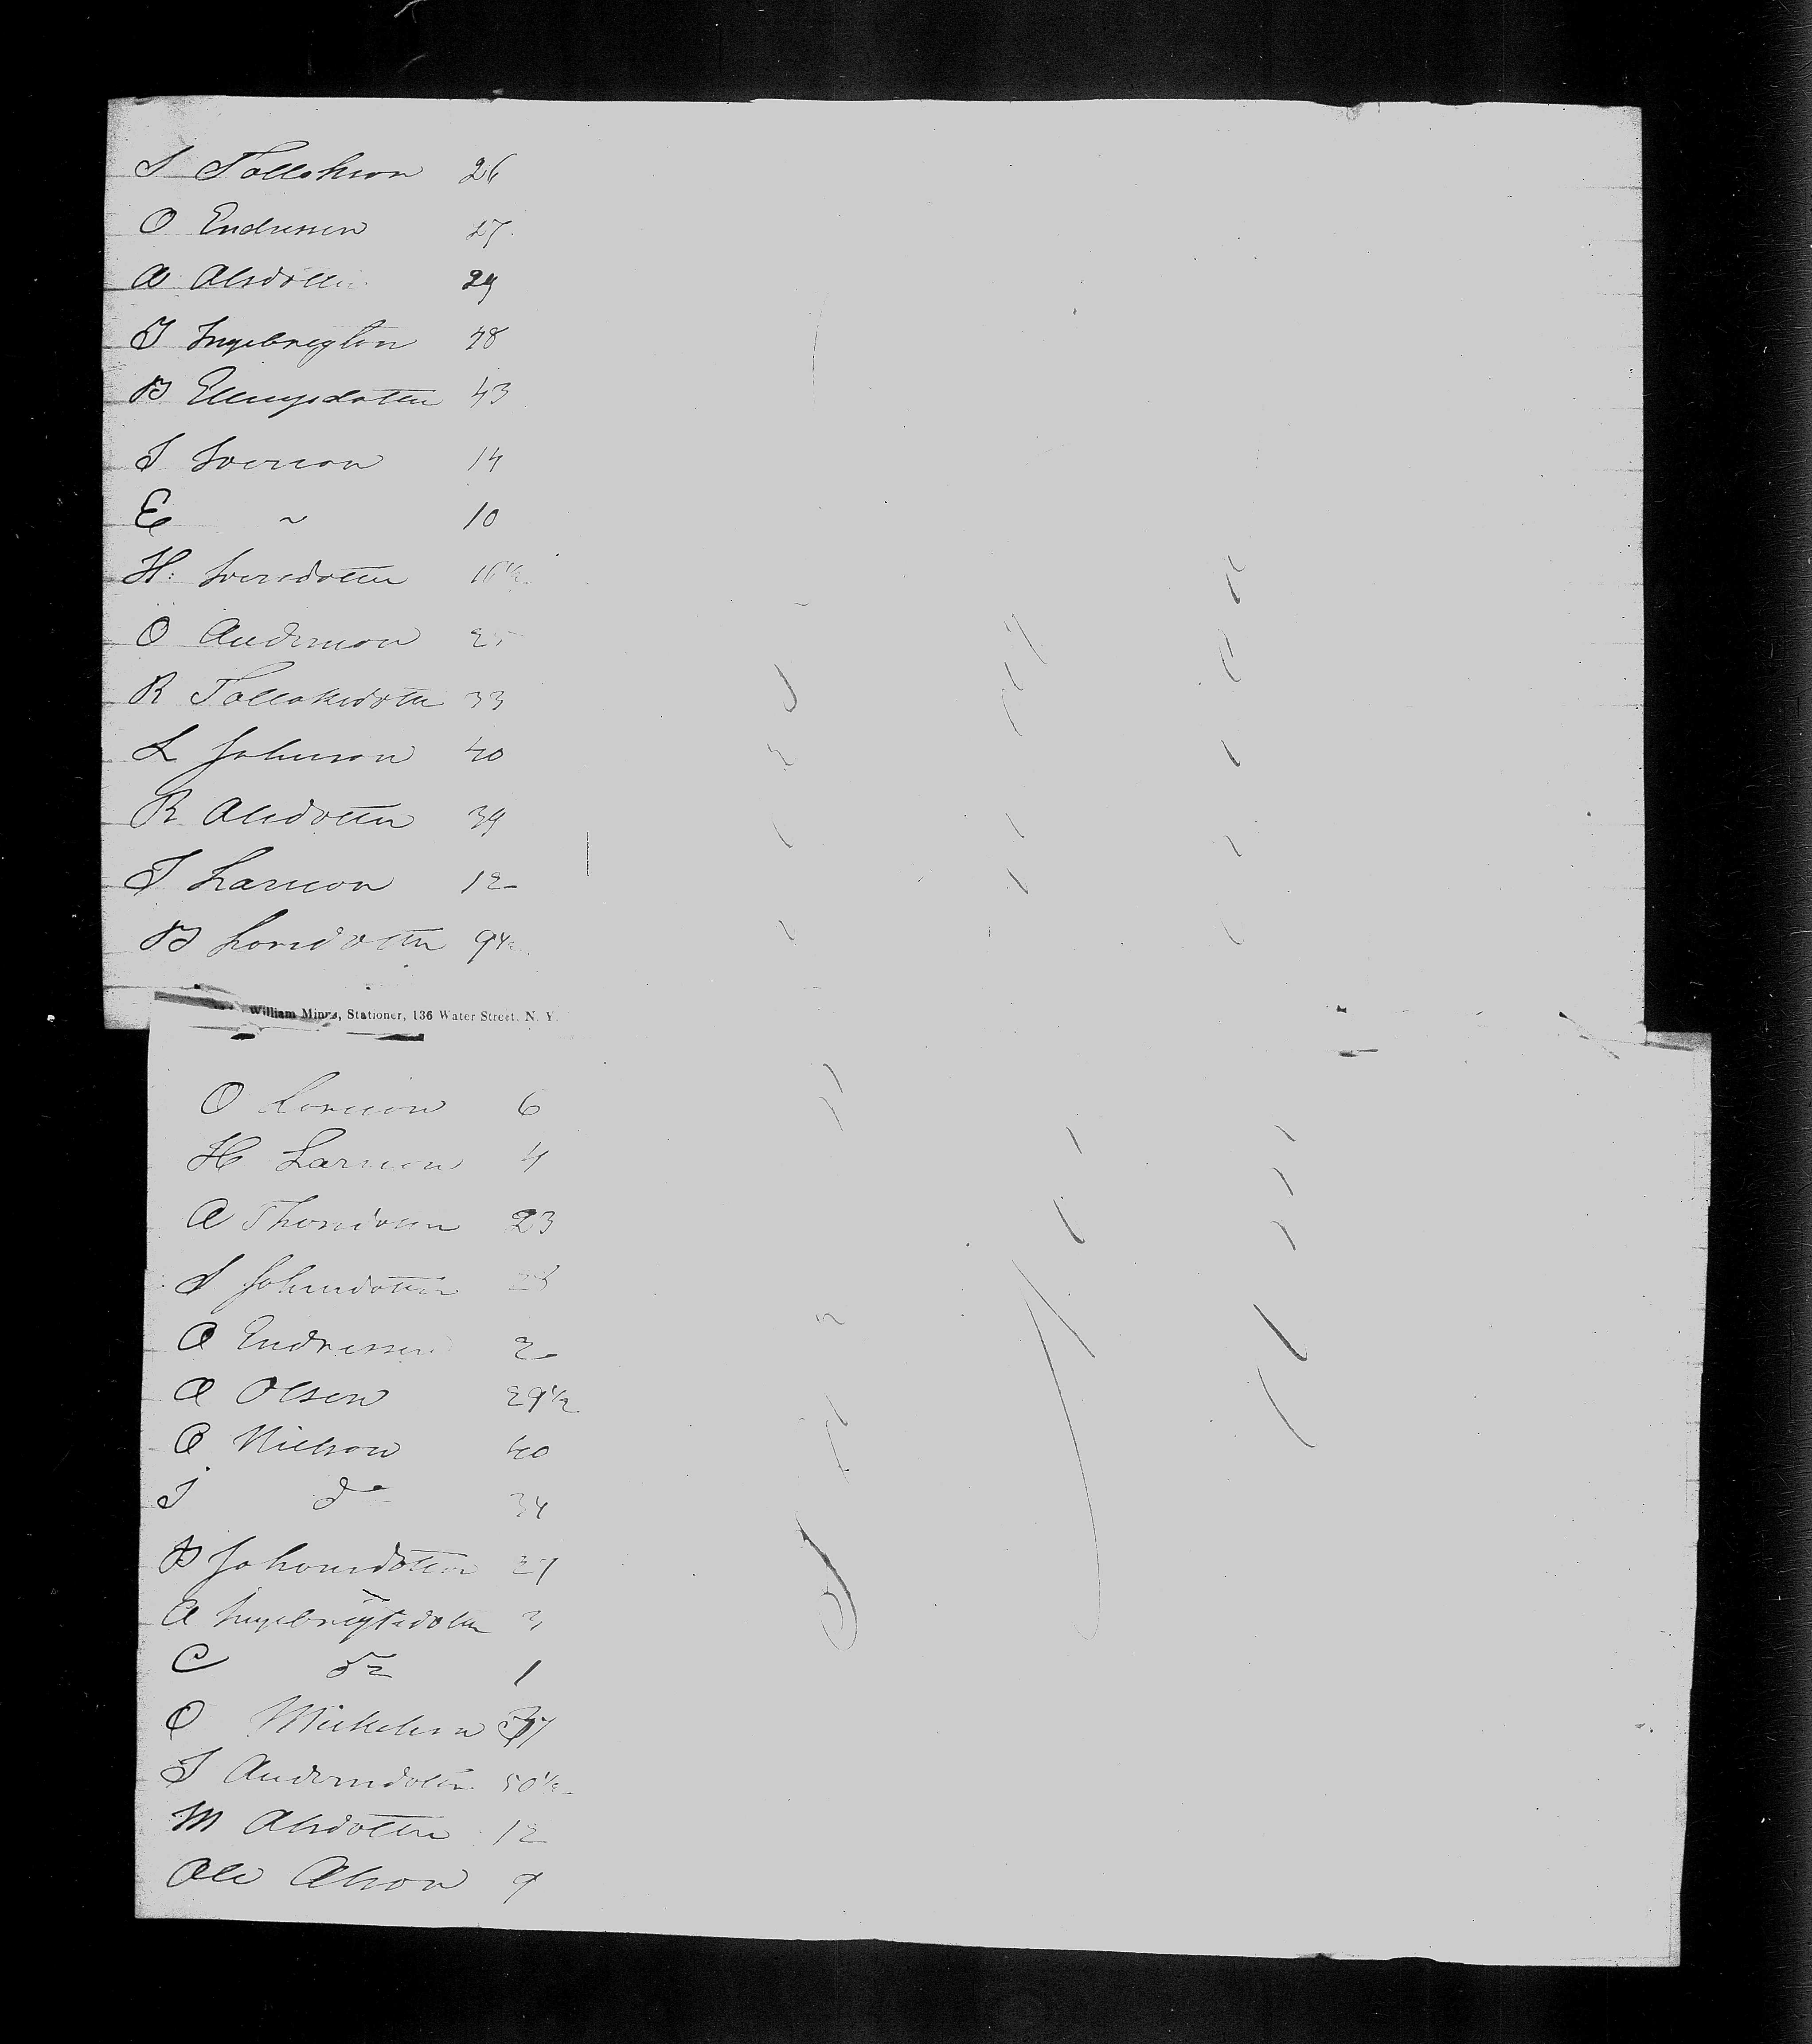 S Tollakson 26
O Endresen 27
A Olsdotter 29
I Ingebregtsen 48
B Ellingsdotter 43
I Iverson 14
E ~ 10
H: Iversdotter 16½
O Anderson 25
R Tollaksdotter 33
L Johnson 40
R Olsdotter 39
T Larsson 12
B Larsdotter 9½
William Minns, Stationer, 136 Water Street, N. Y.
O Larsson 6
H Larsson 4
A Thorsdotter 23
S Johnsdotter
O Endressen 2
A Olsen 29½
O Nielson 40
I do 34
B Johnsdotter 27
A Ingebregtsdotter 3
C do 1
O Mickelson 37
I Andersdotter 50½
M Olsdotter 12
Ole Olson 9